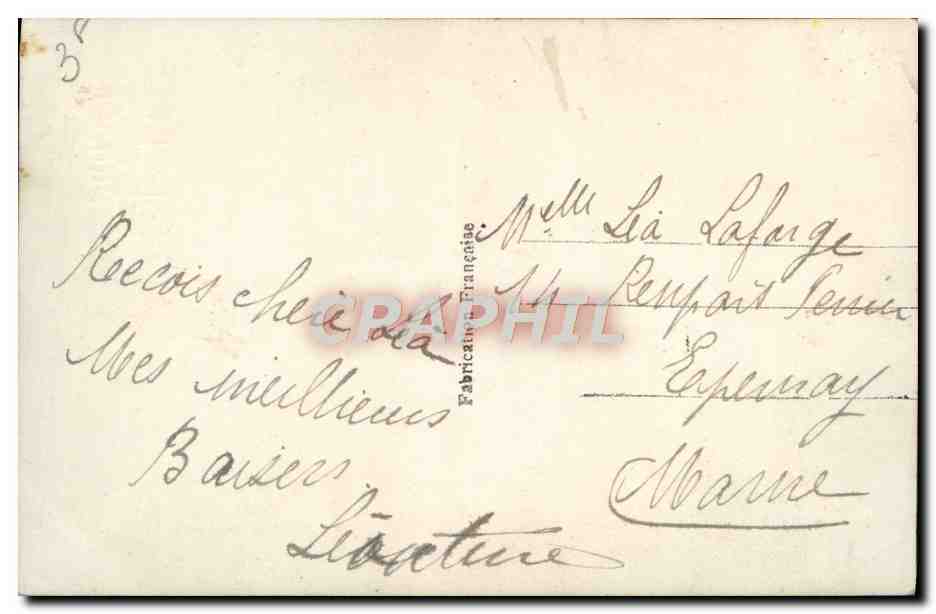 38
Reccois cherie Léa
Mes meillieurs
Baisers
Léontine
Fabrication Française
Melle Léa Laforge
14 Rempart Perrier
Epernay
Marne
CPAPHIL